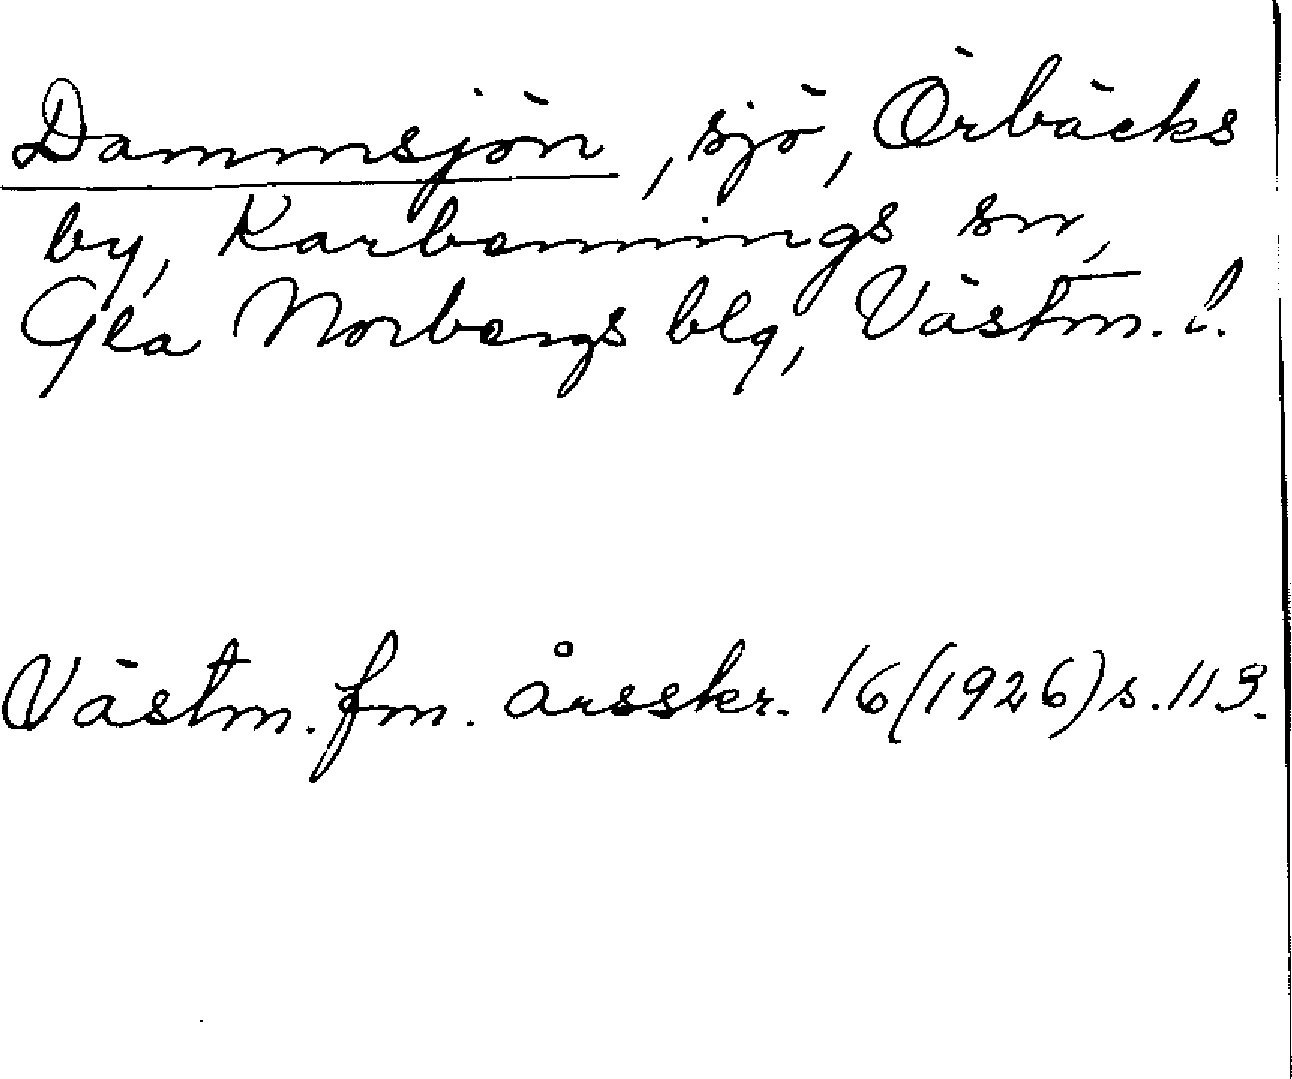 Dammsjön, sjö, Örbäcks
by, Karbennings sn,
Gla Norbergs blg, Västm. l.
Västm. fm. årsskr. 16 (1926) s. 113.